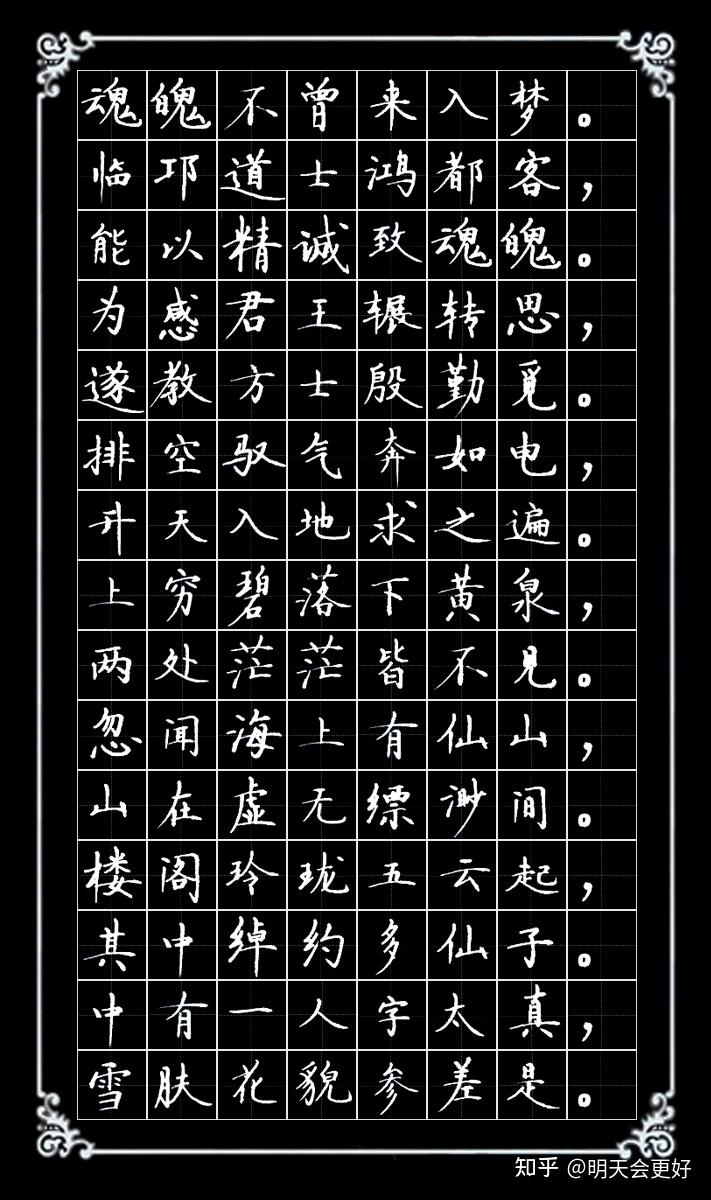 魂魄不曾来入梦。
临邛道士鸿都客，
能以精诚致魂魄。
为感君王辗转思，
遂教方士殷勤觅。
排空驭气奔如电，
升天入地求之遍。
上穷碧落下黄泉，
两处茫茫皆不见。
忽闻海上有仙山，
山在虚无缥渺间。
楼阁玲珑五云起，
其中绰约多仙子。
中有一人字太真，
雪肤花貌参差是。
知乎 @明天会更好